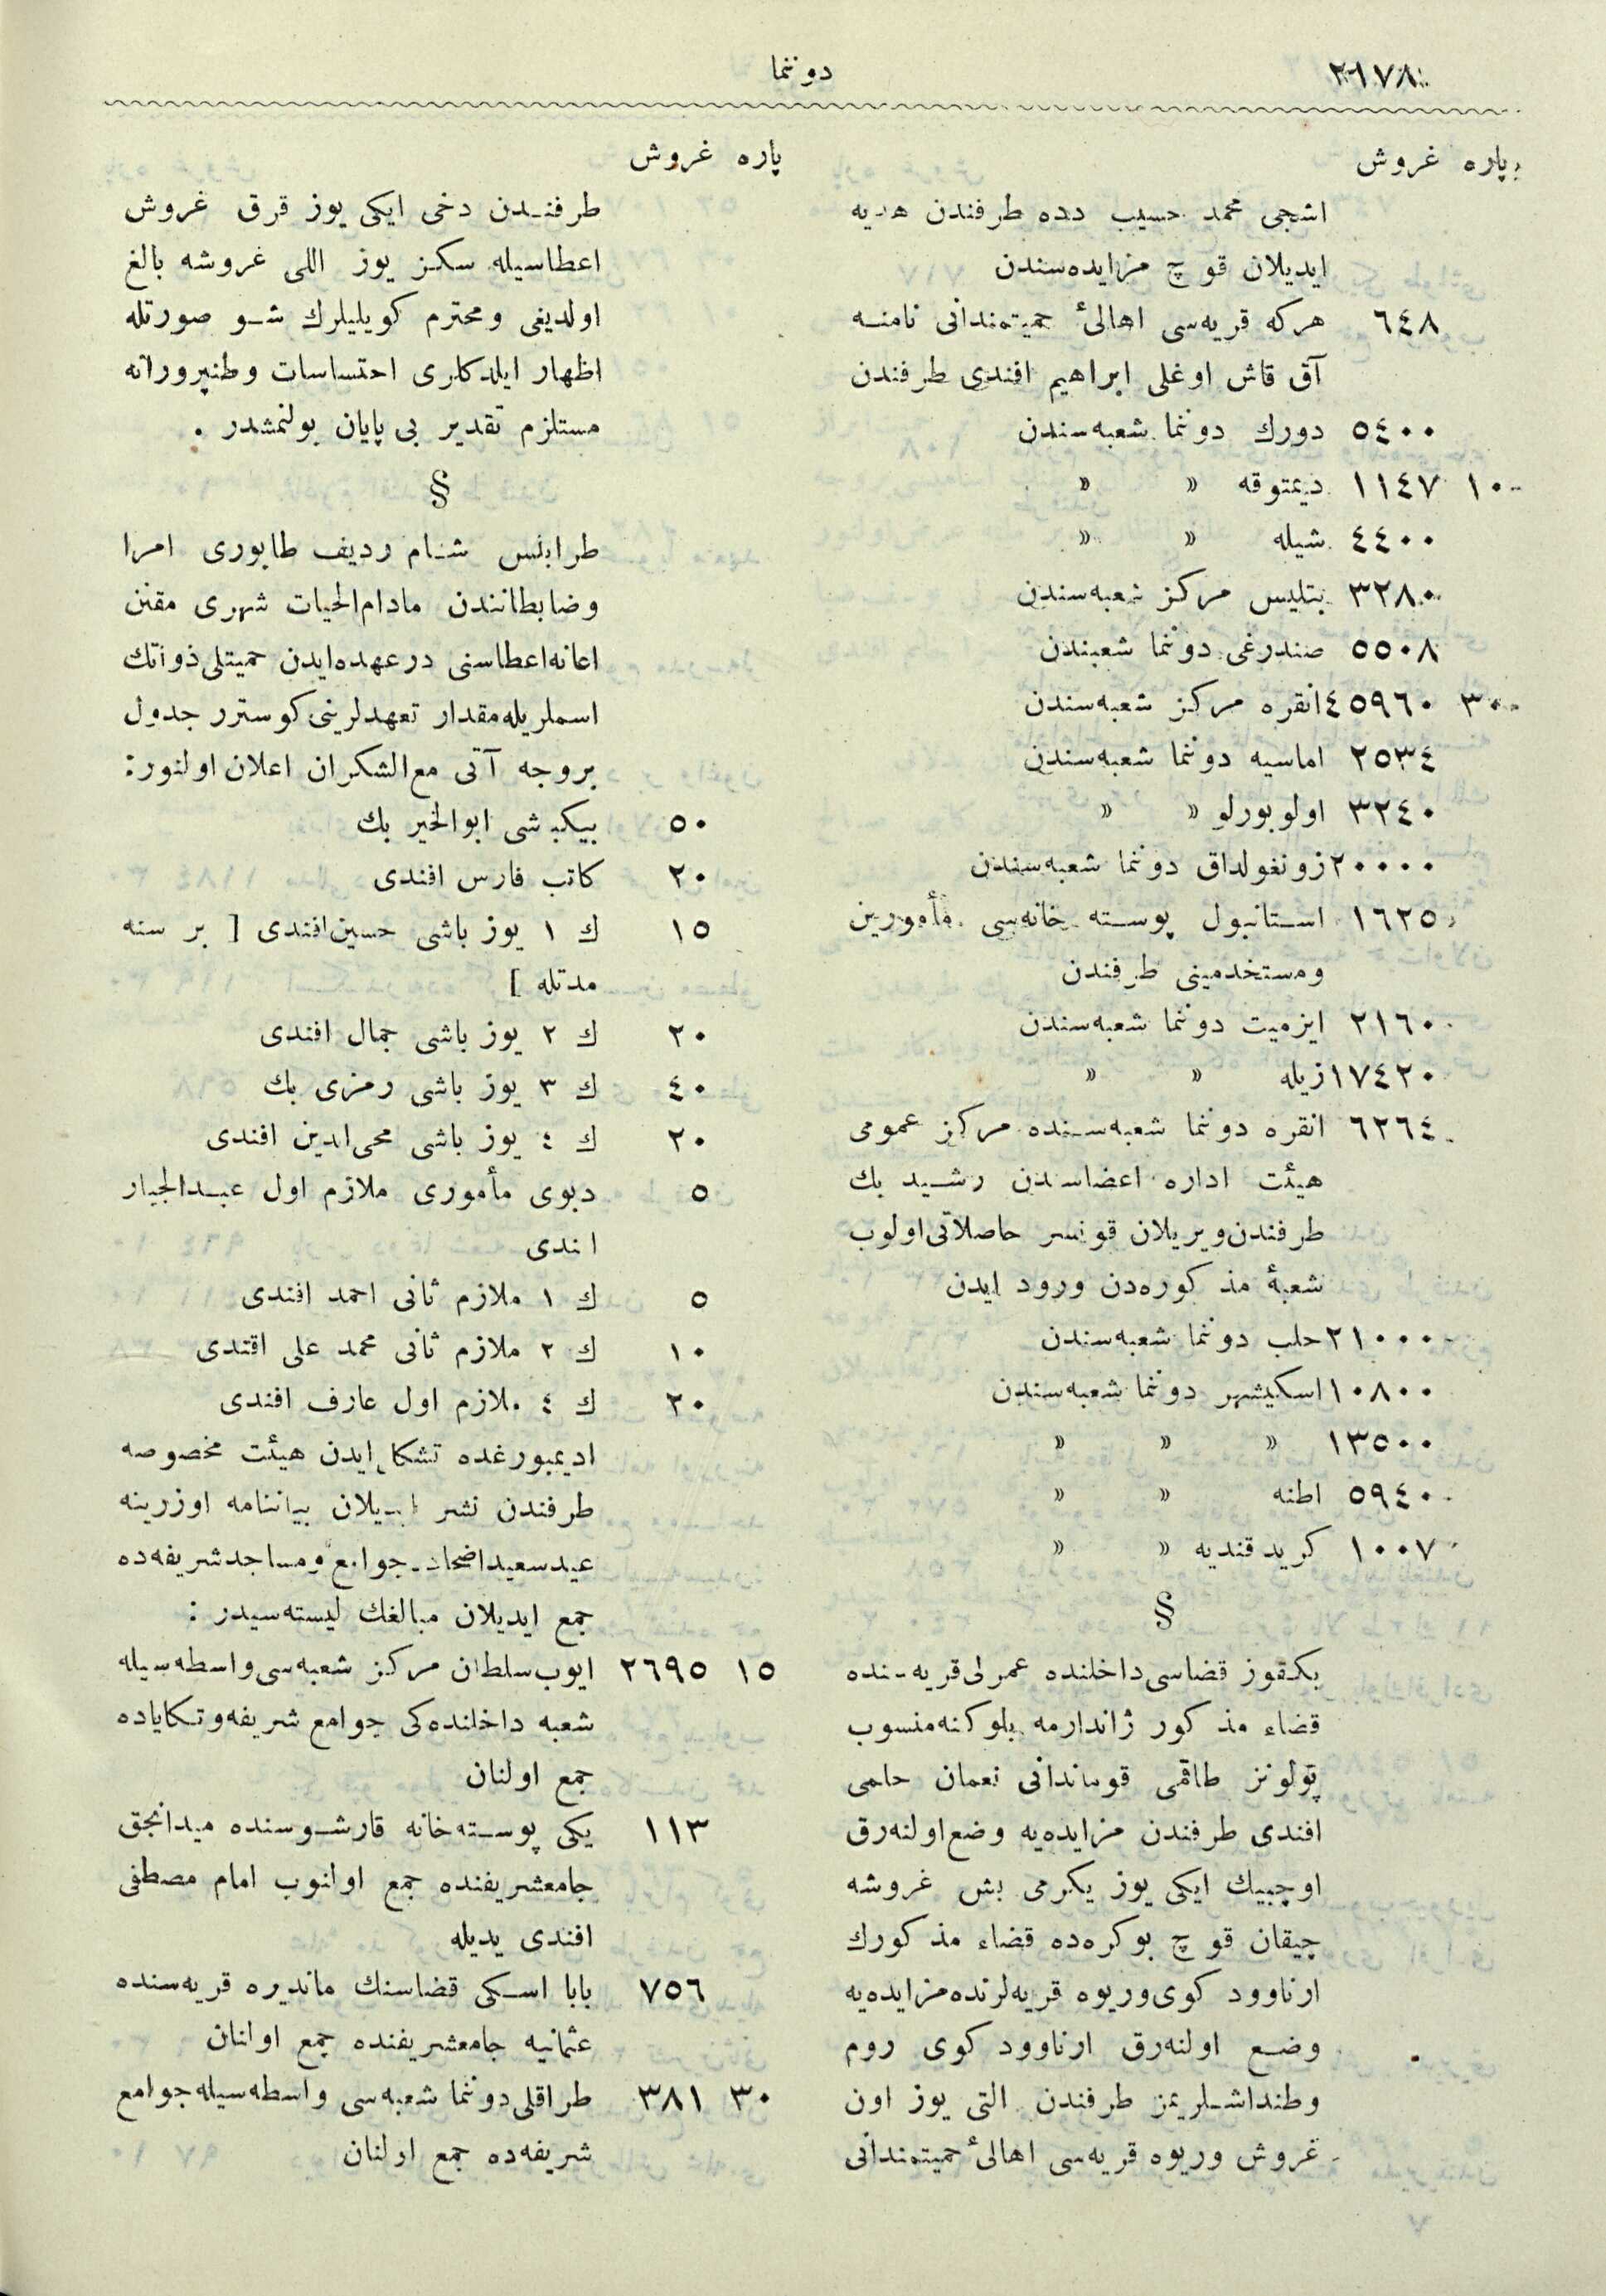 ٢٦٧٨
دوننما
پاره غروش
اشجی محمد حسیب دده طرفندن هدیه
ایدیلان قوچ مزایده‌سندن
٦٤٨ هركه قریه‌سی اهالئ حمیتمندانی نامنه
آق قاش اوغلی ابراهیم افندی طرفندن
٥٤٠٠ دورك دوننما شعبه‌سندن
١٠ ١١٤٧ دیمتوقه » »
٤٤٠٠ شیله » »
٣٢٨٠ بتلیس مركز شعبه‌سندن
٥٥٠٨ صندرغی دوننما شعبندن
٣٠ ٤٥٩٦٠ انقره مركز شعبه‌سندن
٢٥٣٤ اماسیه دوننما شعبه‌سندن
٣٢٤٠ اولوبورلو » »
٢٠٠٠٠ زونغولداق دوننما شعبه‌سندن
١٦٢٥ استانبول پوسته خانه‌سی مأمورین
ومستخدمینی طرفندن
٢١٦٠ ایزمیت دوننما شعبه‌سندن
١٧٤٢٠ زیله » »
٦٢٦٤ انقره دوننما شعبه‌سنده مركز عمومی
هیئت اداره اعضاسدن رشید بك
طرفندن ویریلان قونسر حاصلاتی اولوب
شعبهٔ مذكوره‌دن ورود ایدن
٢١٠٠٠ حلب دوننما شعبه‌سندن
١٠٨٠٠ اسكیشهر دوننما شعبه‌سندن
١٣٥٠٠ » » »
٥٩٤٠ اطنه » »
١٠٠٧ كرید قندیه » »
§
بكقوز قضاسی داخلنده عمرلی قریه‌سنده
قضاء مذكور ژاندارمه بلوكنه منسوب
پولونز طاقمی قوماندانی نعمان حلمی
افندی طرفندن مزایده‌یه وضع اولنه‌رق
اوچبیك ایكی یوز یكرمی بش غروشه
چیقان قوچ بوكره‌ده قضاء مذكورك
ارناوود كوی وریوه قریه‌لرنده مزایده‌یه
وضع اولنه‌رق ارناوود كوی روم
وطنداشلریمز طرفندن التی یوز اون
غروش وریوه قریه‌سی اهالئ حمیتمندانی
پاره غروش
طرفندن دخی ایكی یوز قرق غروش
اعطاسیله سكز یوز اللی غروشه بالغ
اولدیغی ومحترم كویلیلرك شو صورتله
اظهار ایلدكلری احتساسات وطنپرورانه
مستلزم تقدیر بی پایان بولنمشدر .
§
طرابلس شام ردیف طابوری امرا
وضابطانندن مادام‌الحیات شهری مقنن
اعانه اعطاسنی درعهده ایدن حمیتلی ذواتك
اسملریله مقدار تعهدلرینی كوسترر جدول
بروجه آتی مع‌الشكران اعلان اولنور:
٥٠ بیكباشی ابوالخیر بك
٢٠ كاتب فارس افندی
١٥ ك ١ یوز باشی حسین افندی [ بر سنه
مدتله ]
٢٠ ك ٢ یوز باشی جمال افندی
٤٠ ك ٣ یوز باشی رمزی بك
٢٠ ك ٤ یوز باشی محی‌الدین افندی
٥ دبوی مأموری ملازم اول عبدالجبار
افندی
٥ ك ١ ملازم ثانی احمد افندی
١٠ ك ٢ ملازم ثانی محمد علی افندی
٢٠ ك ٤ ملازم اول عارف افندی
ادیمبورغده تشكل ایدن هیئت مخصوصه
طرفندن نشر ایدیلان بیاننامه اوزرینه
عید سعید اضحاده جوامع ومساجد شریفه‌ده
جمع ایدیلان مبالغك لیسته‌سیدر :
١٥ ٢٦٩٥ ایوب سلطان مركز شعبه‌سی واسطه‌سیله
شعبه داخلنده‌كی جوامع شریفه وتكایاده
جمع اولنان
١١٣ یكی پوسته‌خانه قارشوسنده میدانجق
جامعشریفنده جمع اولنوب امام مصطفی
افندی یدیله
٧٥٦ بابا اسكی قضاسنك ماندیره قریه‌سنده
عثمانیه جامعشریفنده جمع اولنان
٣٠ ٣٨١ طراقلی دوننما شعبه‌سی واسطه‌سیله جوامع
شریفه‌ده جمع اولنان